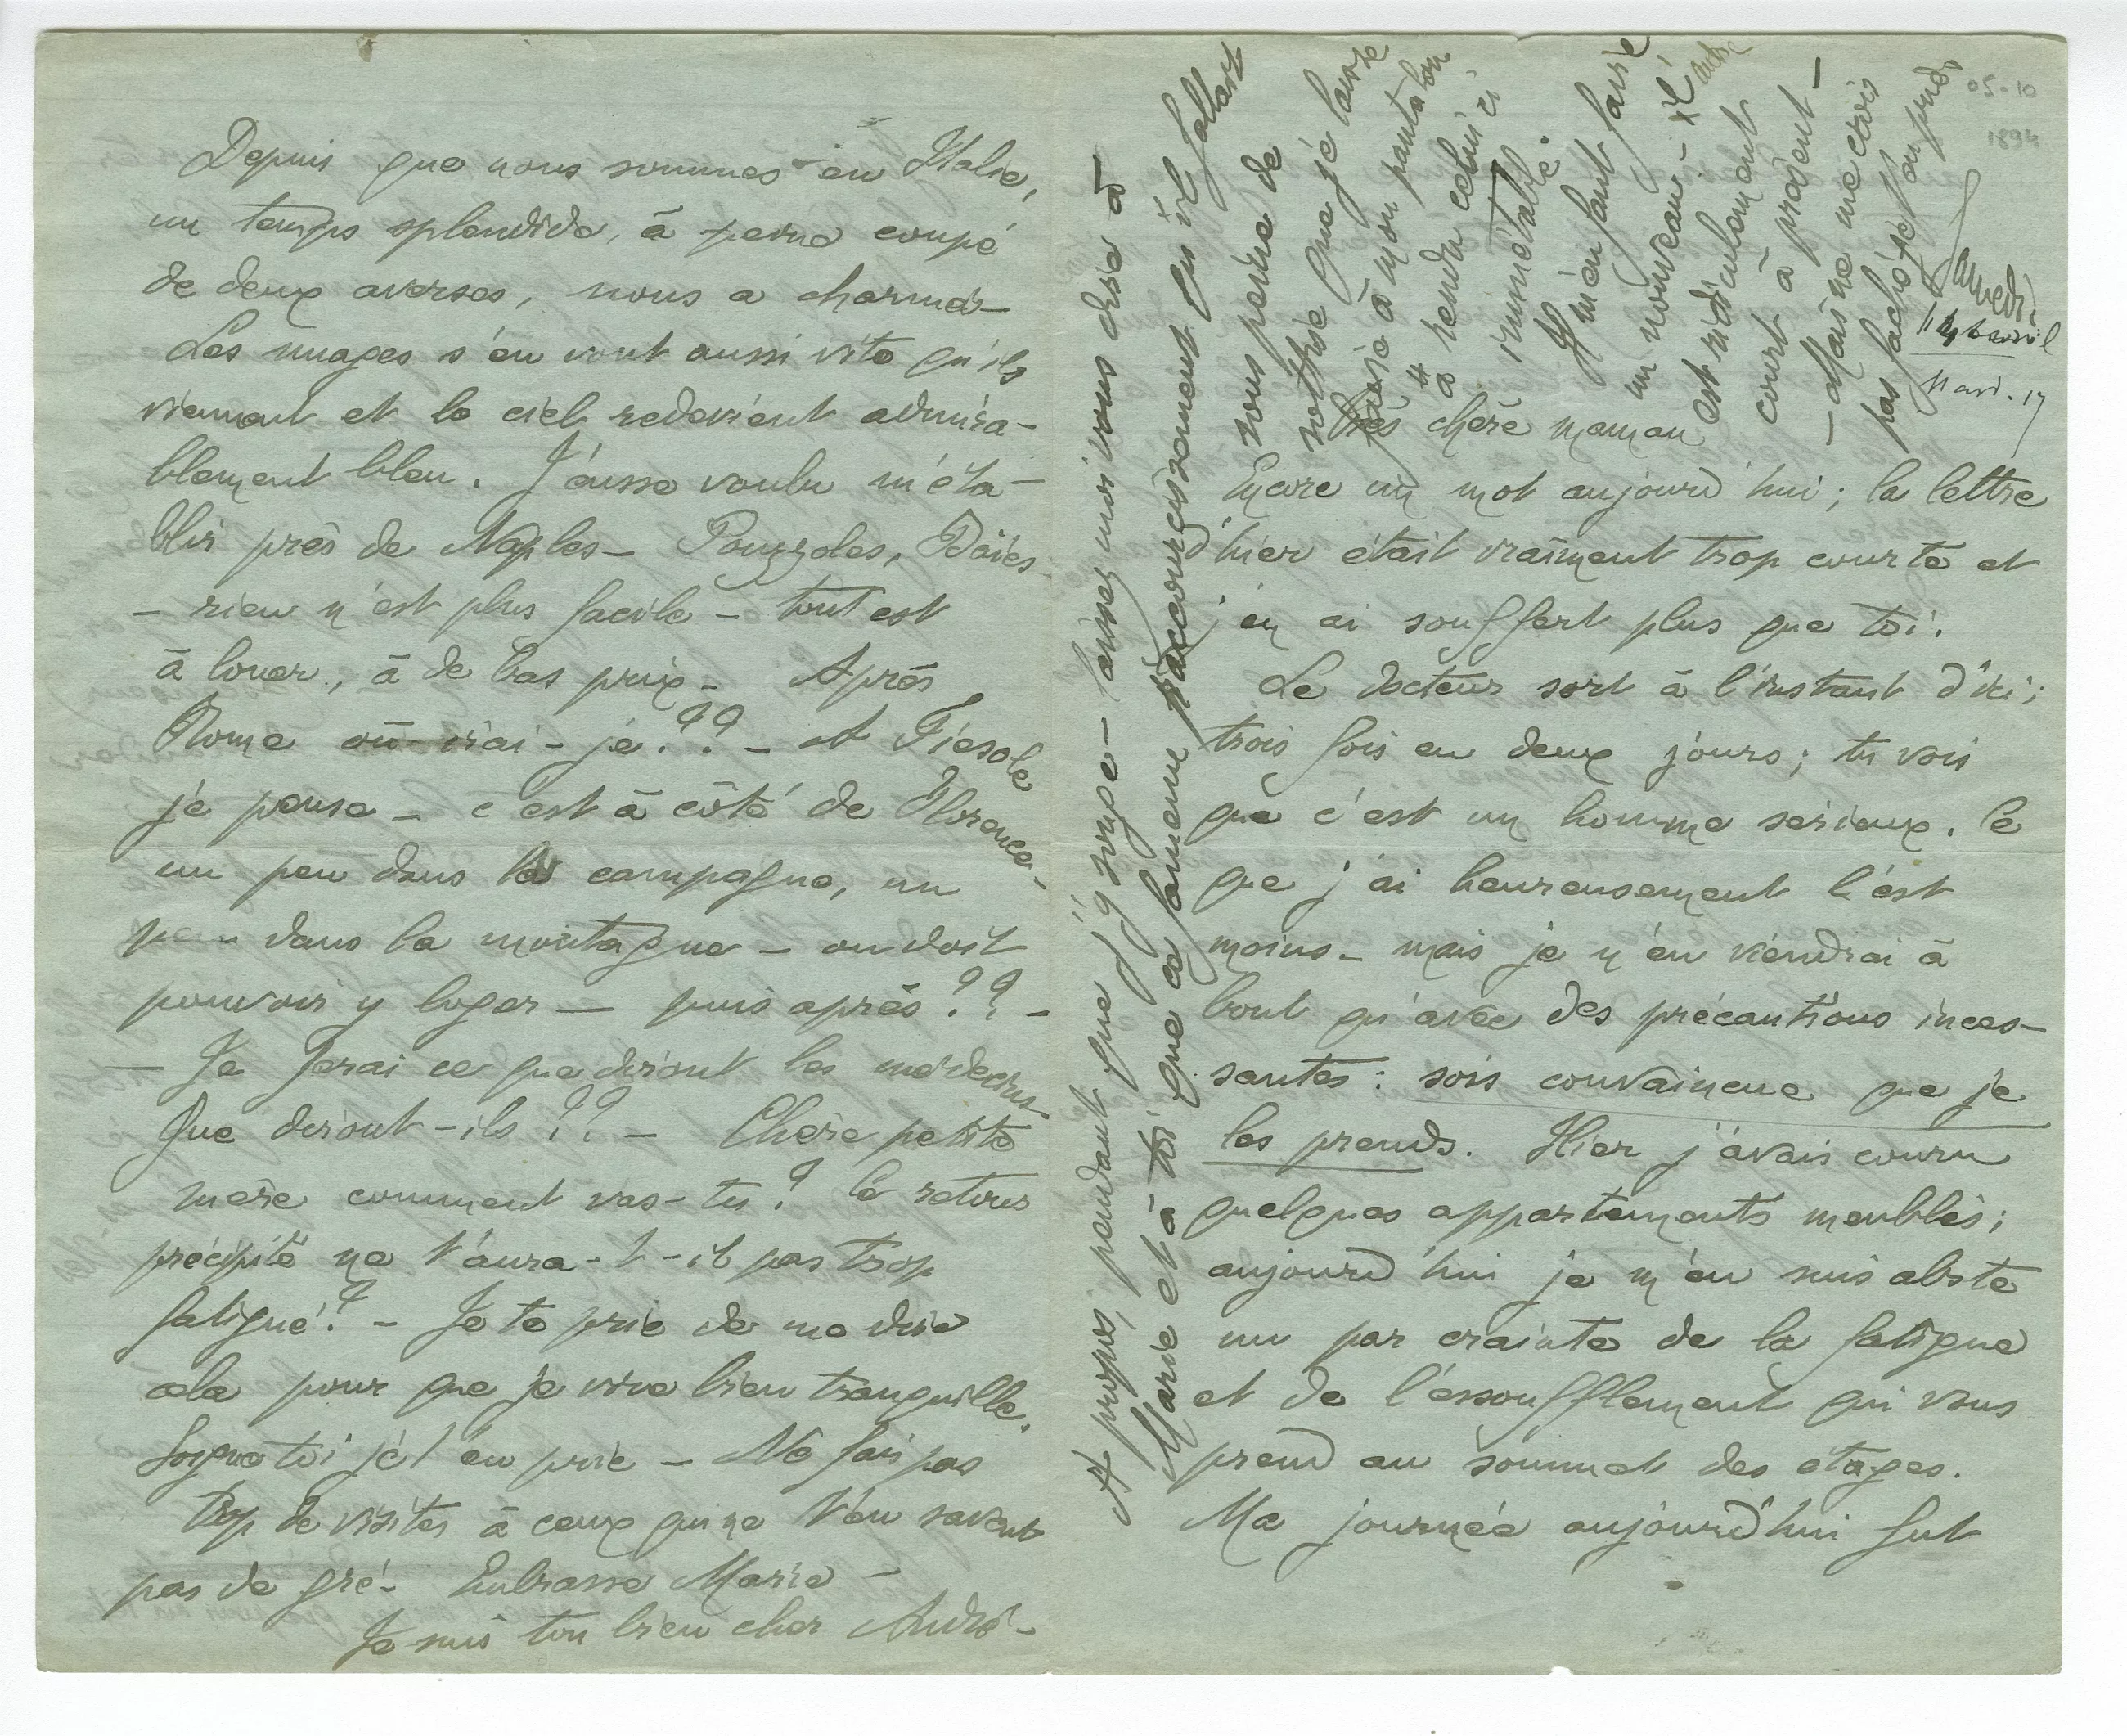 05-10
1894
Samedi.
14 avril
Mard. 17
Très chère maman
Encore un mot aujourd'hui ; la lettre
d'hier était vraiment trop courte et
j'en ai souffert plus que toi.
Le docteur sort à l'instant d'ici ;
trois fois en deux jours ; tu vois
que c'est un homme serieux. Ce
que j'ai heureusement l'est
moins - mais je n'en viendrai à
bout qu'avec des précautions inces-
santes : sois convaincue que je
les prends. Hier j'avais couru
quelques appartements meublés ;
aujourd'hui je m'en suis abste
nu par crainte de la fatigue
et de l'essoufflement qui vous
prend au sommet des etages.
Ma journée aujourd'hui fut
Depuis que nous sommes en Italie,
un temps splendide, à peine coupé
de deux averses, nous a charmés -
Les nuages s'en vont aussi vite qu'ils
viennent et le ciel redevient admira-
blement bleu. J'eusse voulu m'éta-
blir près de Naples - Pouzzoles, Baies
- rien n'est plus facile - tout est
à louer, à de bas prix - Après
Rome où irai-je ?? - A Fiesole
je pense - c'est à côté de Florence,
un peu dans la campagne, un
peu dans la montagne - on doit
pouvoir y loger — puis après ?? -
— Je ferai ce que diront les médecins
Que diront-ils ?? - Chère petite
mère comment vas-tu ? le retour
précipité ne t'aura-t-il pas trop
fatigué ? - Je te prie de me dire
cela pour que je vive bien tranquille.
Soigne toi je t'en prie - Ne fais pas
trop de visites à ceux qui ne t'en savent
pas de gré - Embrasse Marie -
Je suis ton bien cher André -
A propos, pendant que j'y songe - laissez moi vous dire à
Marie et à toi que ce fameux raccourcissement qu'il fallait
sous peine de
sottise que je fasse
faire à mon pantalon
a rendu celui ci
immettable.
Il m'en faut faire
un nouveau - il
autre
est ridiculement
court à présent -
- Mais ne me crois
pas fâché